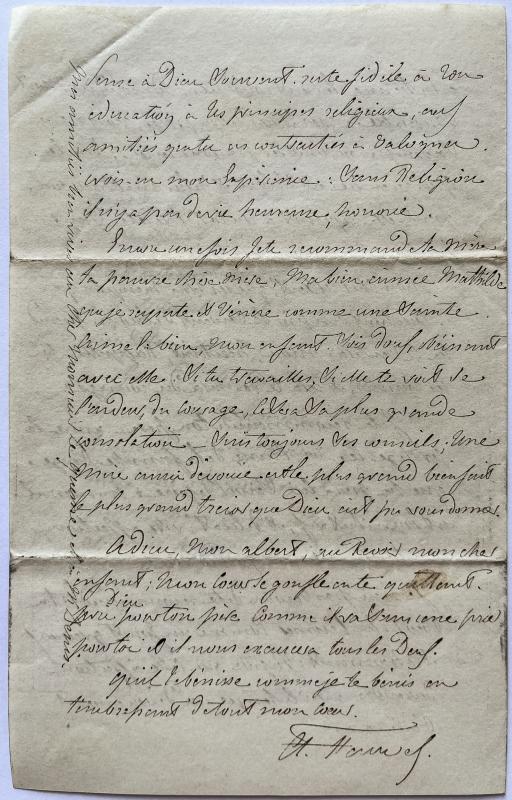 Pense à Dieu souvent. reste fidèle à ton
éducation, à tes principes religieux, aux
amitiés que tu as contractées à Valognes.
crois-en mon expérience : sans Religion
il n'y a pas de vie heureuse, honorée.
Encore une fois je te recommande ta mère
ta pauvre chère mère, Ma bien aimée Mathilde
que je respecte et vénère comme une Sainte.
aime la bien, mon enfant. Sois doux, obéissant
avec elle. Si tu travailles, si elle te voit de
l'ardeur, du courage, ce sera sa plus grande
consolation. Suis toujours ses conseils ; Une
mère aussi dévouée est le plus grand bienfait
le plus grand trésor que Dieu ait pu vous donner.
Adieu, mon albert, au Revoir mon cher
enfant ; mon cœur se gonfle en te quittant.
prie Dieu pour ton père comme il va sans cesse prier
pour toi et il nous exaucera tous les Deux.
qu'il te bénisse comme je te bénis en
t'embrassant de tout mon cœur.
mes amitiés bien vives au